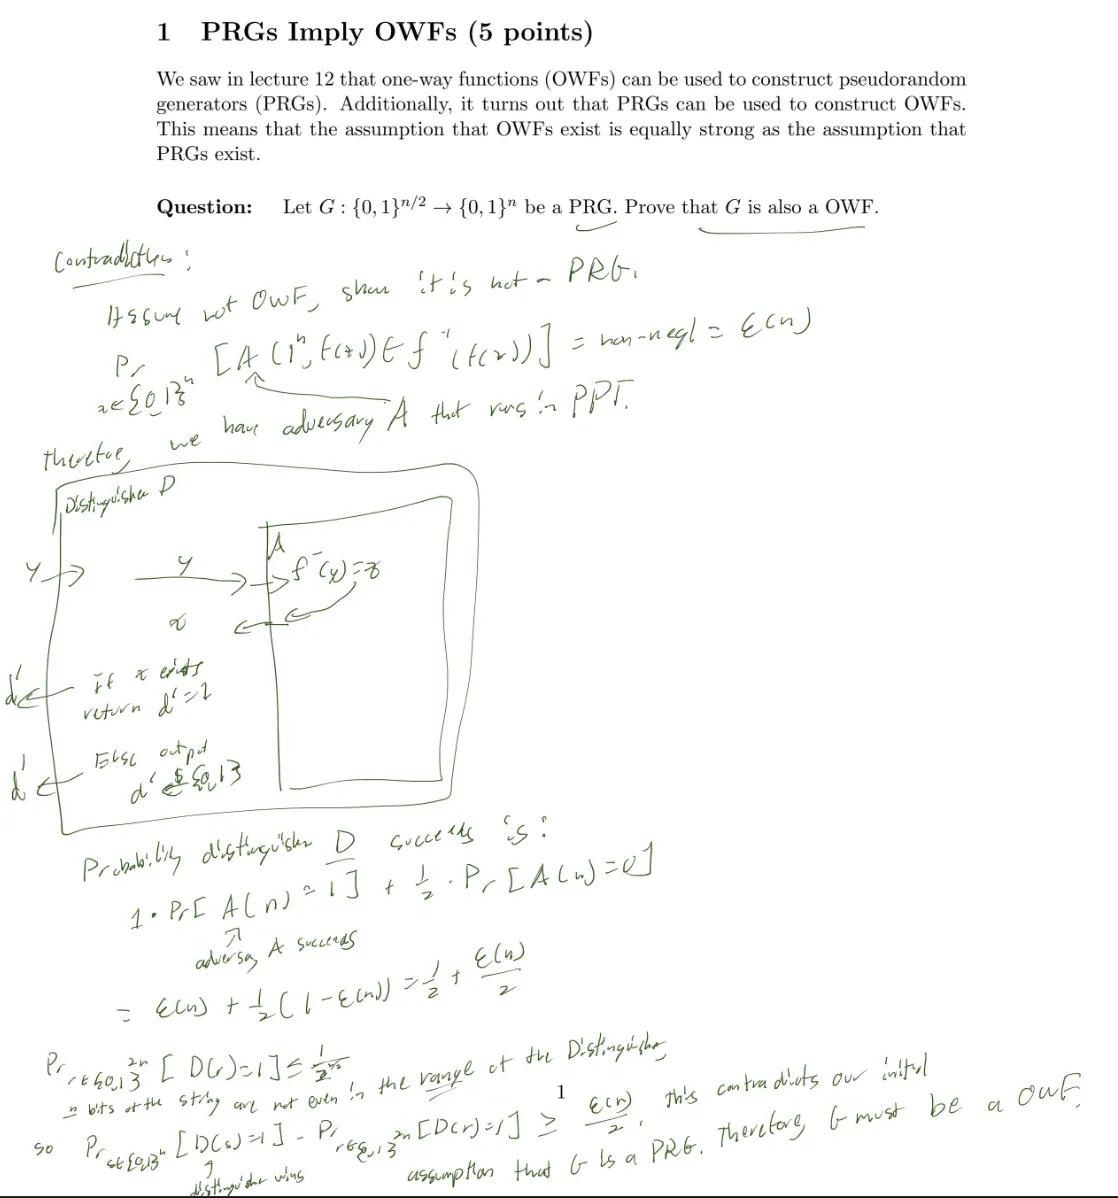 1 PRGs Imply OWFs (5 points)
We saw in lecture 12 that one-way functions (OWFs) can be used to construct pseudorandom
generators (PRGs). Additionally, it turns out that PRGs can be used to construct OWFs.
This means that the assumption that OWFs exist is equally strong as the assumption that
PRGs exist.
Question: Let G : {0, 1}^{n/2} → {0, 1}^n be a PRG. Prove that G is also a OWF.
Contradiction:
Assume not OWF, show it is not a PRG.
Pr [A(1^n, f(x)) ∈ f^{-1}(f(x))] = non-negl = ε(n)
x∈{0,1}^n
therefore, we have adversary A that runs in PPT.
Distinguisher D
A
y → y → f^{-1}(y)=x
x ←
d' ← if x exists
return d'=1
d' ← Else output
d' ←$ {0,1}
Probability distinguisher D succeeds is:
1 · Pr[A(n) = 1] + 1/2 · Pr[A(n)=0]
adversary A succeeds
= ε(n) + 1/2(1-ε(n)) = 1/2 + ε(n)/2
Pr_{r∈{0,1}^{2n}} [D(r)=1] ≤
n bits of the string are not even in the range of the Distinguisher
1
so Pr_{s∈{0,1}^n} [D(s)=1] - Pr_{r∈{0,1}^{2n}} [D(r)=1] ≥ ε(n)/2, this contradicts our initial
distinguisher wins
assumption that G is a PRG. Therefore, G must be a OWF.